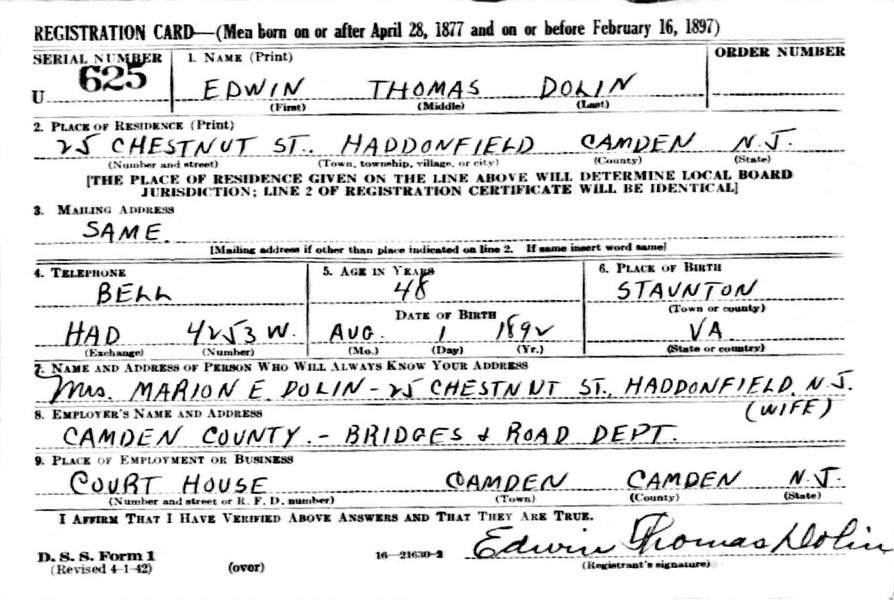 REGISTRATION CARD—(Men born on or after April 28, 1877 and on or before February 16, 1897)
SERIAL NUMBER 1. NAME (Print) ORDER NUMBER
U 625 EDWIN THOMAS DOLIN
(First) (Middle) (Last)
2. PLACE OF RESIDENCE (Print)
25 CHESTNUT ST. HADDONFIELD CAMDEN N.J.
(Number and street) (Town, township, village, or city) (County) (State)
[THE PLACE OF RESIDENCE GIVEN ON THE LINE ABOVE WILL DETERMINE LOCAL BOARD
JURISDICTION; LINE 2 OF REGISTRATION CERTIFICATE WILL BE IDENTICAL]
3. MAILING ADDRESS
SAME.
[Mailing address if other than place indicated on line 2. If same insert word same]
4. TELEPHONE 5. AGE IN YEARS 6. PLACE OF BIRTH
BELL 48 STAUNTON
DATE OF BIRTH (Town or county)
HAD 4253 W. AUG. 1 1892 VA
(Exchange) (Number) (Mo.) (Day) (Yr.) (State or country)
7. NAME AND ADDRESS OF PERSON WHO WILL ALWAYS KNOW YOUR ADDRESS
Mrs. MARION E. DOLIN - 25 CHESTNUT ST., HADDONFIELD, N.J.
8. EMPLOYER'S NAME AND ADDRESS (WIFE)
CAMDEN COUNTY. - BRIDGES & ROAD DEPT.
9. PLACE OF EMPLOYMENT OR BUSINESS
COURT HOUSE CAMDEN CAMDEN N.J.
(Number and street or R. F. D. number) (Town) (County) (State)
I AFFIRM THAT I HAVE VERIFIED ABOVE ANSWERS AND THAT THEY ARE TRUE.
Edwin Thomas Dolin
D. S. S. Form 1 16—21630-2
(Revised 4-1-42) (over) (Registrant's signature)